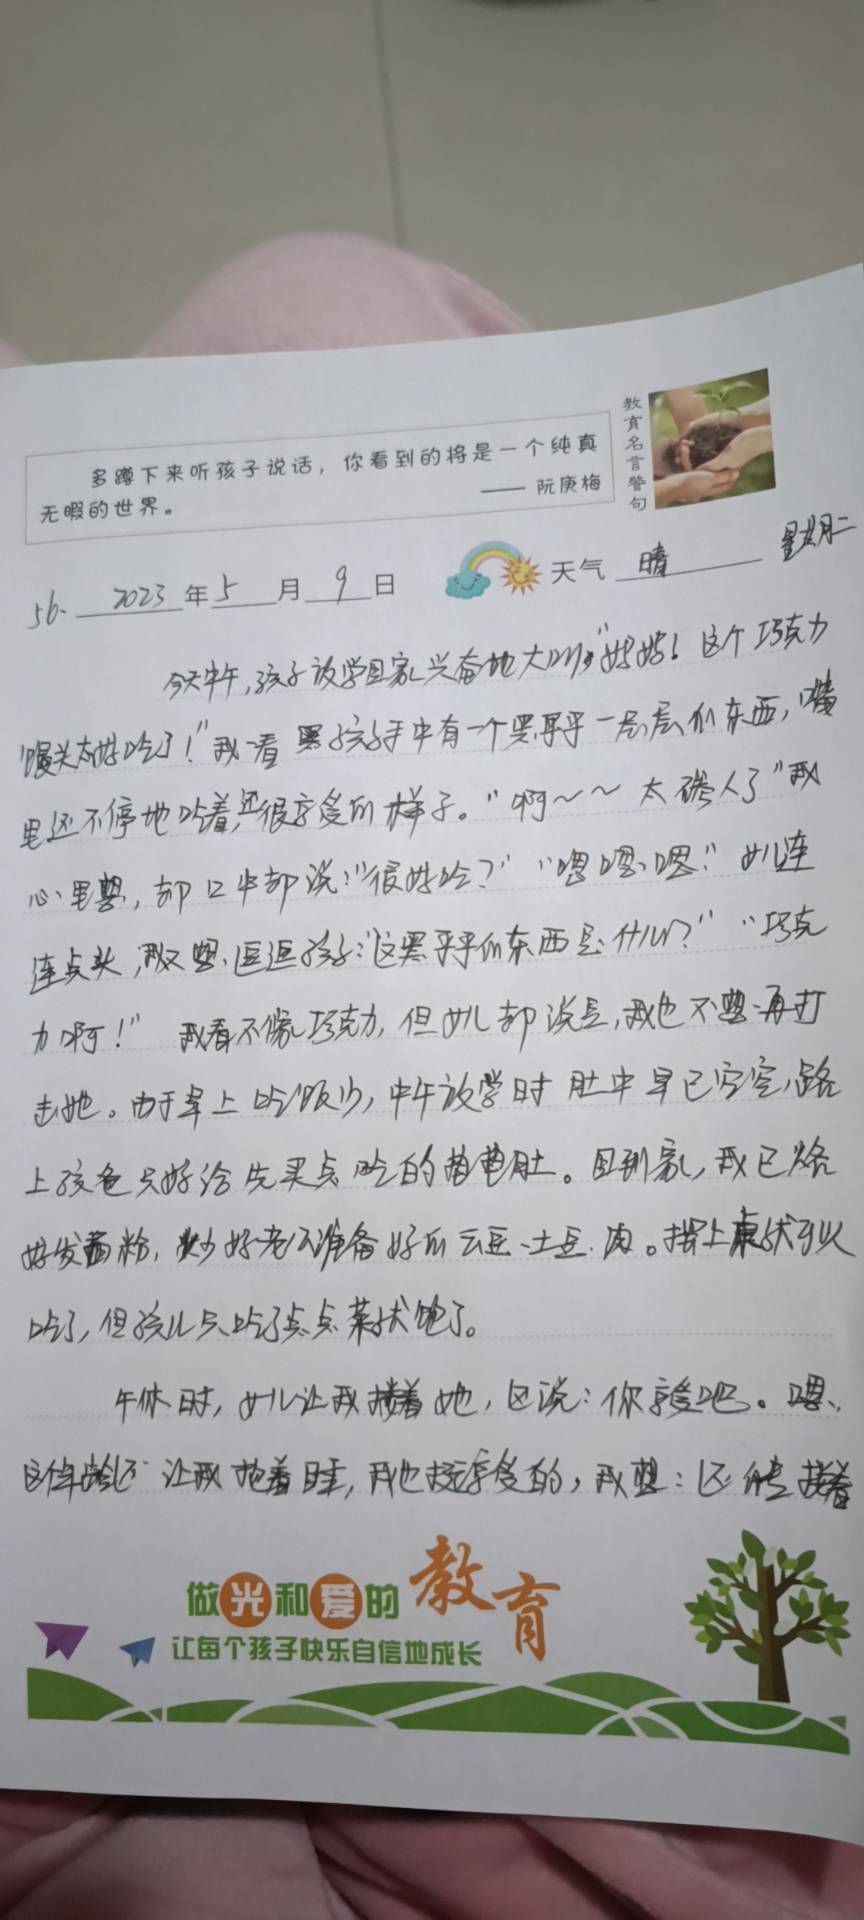 多蹲下来听孩子说话，你看到的将是一个纯真
无暇的世界。
—— 阮庚梅
教育名言警句
56. 2023年5月9日 天气 晴 星期二
今天中午，孩子放学回家兴奋地大叫："妈妈！这个巧克力
馒头太好吃了！"我一看 孩子手中有一个黑乎乎一层层的东西，嘴
里还不停地吃着，还很享受的样子。"啊～～ 太 人了"我
心里想，却口中却说："很好吃？" "嗯嗯嗯." 女儿连
连点头，我又想逗逗孩子："这黑乎乎的东西是什么？" "巧克
力啊！" 我看不像巧克力，但女儿却说是，我也不想再打
击她。由于早上吃饭少，中午放学时 肚中早已空空，路
上孩爸只好给先买点吃的 肚。回到家，我已烙
好发面 ，炒好老公准备好的云豆、土豆、肉。摆上桌就可以
吃了，但孩儿只吃了点点菜就饱了。
午休时，女儿让我搂着她，还说：你享受吧。嗯，
这年龄还让我抱着睡，我也挺享受的，我想：还能搂着
做光和爱的教育
让每个孩子快乐自信地成长